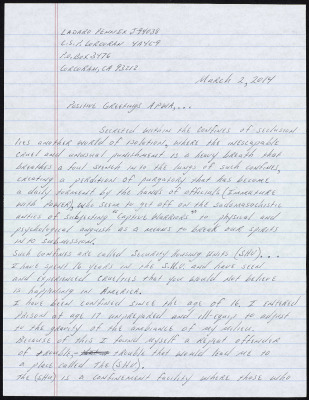 LADARO PENNIX J44038
C.S.P. CORCORAN - 4A4C4
P.O. BOX 3476
CORCORAN, CA 93212
March 2, 2014
POSITIVE Greetings APWA,...
Secreted within the confines of seclusion
lies another world of isolation, where the inescapable
cruel and unusual punishment is a heavy breath that
breathes a foul stench into the lungs of such confines,
creating a perdition of purgatory that has become
a daily torment by the hands of officials (immature
with power), who seem to get off on the sadomasochistic
antics of subjecting "Captive Wardards" to physical and
psychological anguish as a means to break our spirits
into submission.
Such confines are called Security Housing Units (SHU)...
I have spent 16 years in the S.H.U. and have seen
and experienced cruelties that you would not believe
is happening in America.
I have been confined since the age of 16. I entered
prison at age 17 unprepared and ill-equip to adjust
to the gravity of the ambiance of my milieu.
Because of this I found myself a repeat offender
of trouble, trouble that would lead me to
a place called the (SHU).
The (SHU) is a confinement facility where those who